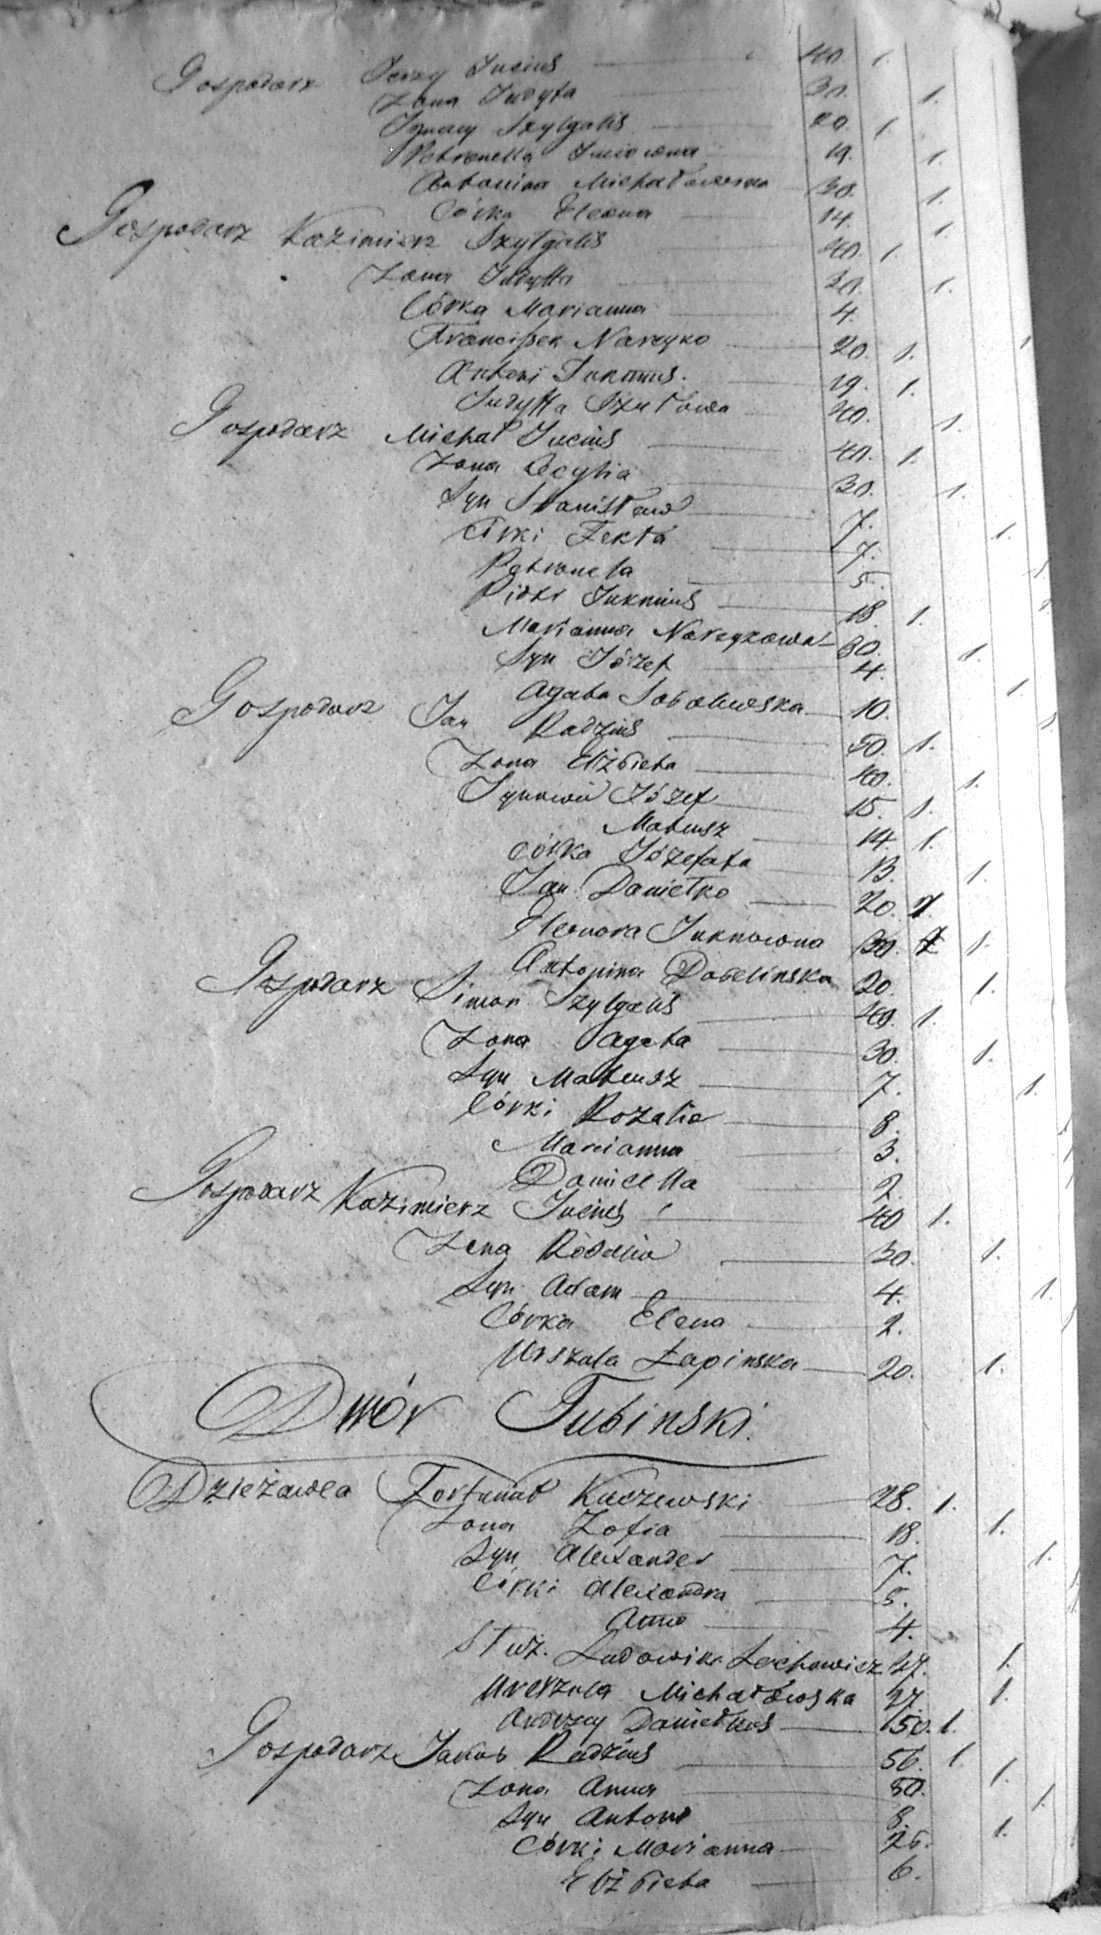 Gospodarz Jerzy Jucius 40. 1.
Żona Judyta 30. 1.
Ignacy Szylgalis 20. 1.
Petronella Juciowna 19. 1.
Antonina Michałowska 30. 1.
Córka Eleona 14. 1.
Gospodarz Kazimierz Szylgalis 40. 1.
Żona Judytta 30. 1.
Córka Marianna 4. 1.
Franciszek Narzyko 20. 1.
Antoni Juknius. 19. 1.
Judytta 40. 1.
Gospodarz Michał Jucius 40. 1.
Żona Cecylia 30. 1.
Syn Stanisław 7. 1.
Córki Tekla 7.
Petronela 5.
Piotr Juknius 18. 1.
Marianna Narzykowa 30. 1.
Syn Józef 4. 1.
Agata Sobolewska 10.
Gospodarz Jan Radzius 50. 1.
Żona Elżbieta 40. 1.
Synowie Józef 15. 1.
Mateusz 14. 1.
Córka Józefata 13. 1.
Jan Daniełko 20. 1.
Eleonora Juknowna 30. 1.
Antonina Dobelinska 20. 1.
Gospodarz Simon Szylgalis 40. 1.
Żona Agata 30. 1.
Syn Mateusz 7. 1.
Córki Rozalia 8.
Marianna 3.
Daniella 2.
Gospodarz Kazimierz Jucius 40 1.
Żona Rozalia 30. 1.
Syn Adam 4. 1.
Córka Elena 2.
Urszula Łapinska 20. 1.
Dwór Tubinski.
Dzieżawca Fortunat Kuczewski 28. 1.
Żona Zofia 18. 1.
Syn Alexander 7. 1.
Córki Alexandra 5.
Anna 4.
Służ. Ludowika Lechowicz 27. 1.
Urszula Michałowska 27. 1.
Andrzey Daniełkus 50. 1.
Gospodarz Jakub Radzius 56. 1.
Żona Anna 50. 1.
Syn Antoni 8. 1.
Córki Marianna 26. 1.
Elżbieta 6.